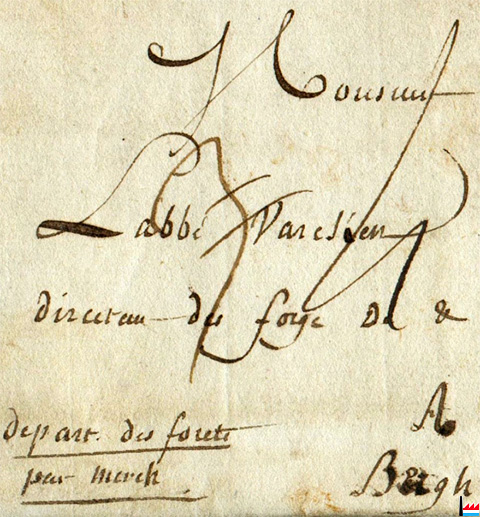 Monsieur
Labbé Varesien
directeur des forge de &
A
Bergh
depart. des foretr
par merch